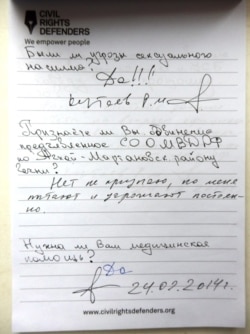 CIVIL
RIGHTS
DEFENDERS
We empower people
Были ли угрозы сексуального
насилия?
Да!!!
Кутаев Р.М
Признаёте ли Вы обвинение
предъявленное СО О МВД РФ
по Ачхой-Мартановск. району
Нет не признаю, но меня
пытают и угрожают постоян-
но.
Нужна ли Вам медицинская
помощь?
Да
24.02.2014г.
www.civilrightsdefenders.org